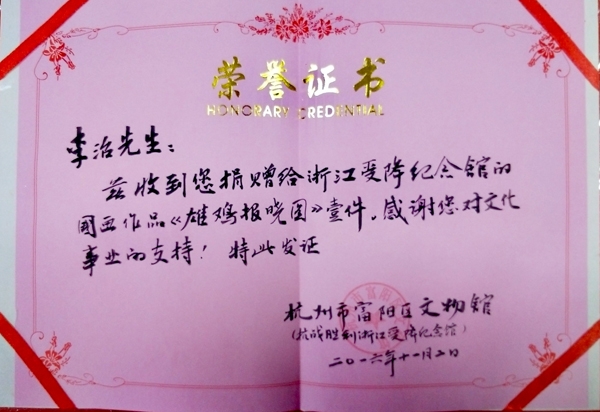 荣誉证书
HONORARY CREDENTIAL
李治先生：
兹收到您捐赠给浙江受降纪念馆的
国画作品《雄鸡报晓图》壹件。感谢您对文化
事业的支持！特此发证
杭州市富阳区文物馆
（抗战胜利浙江受降纪念馆）
二〇一六年十一月二日